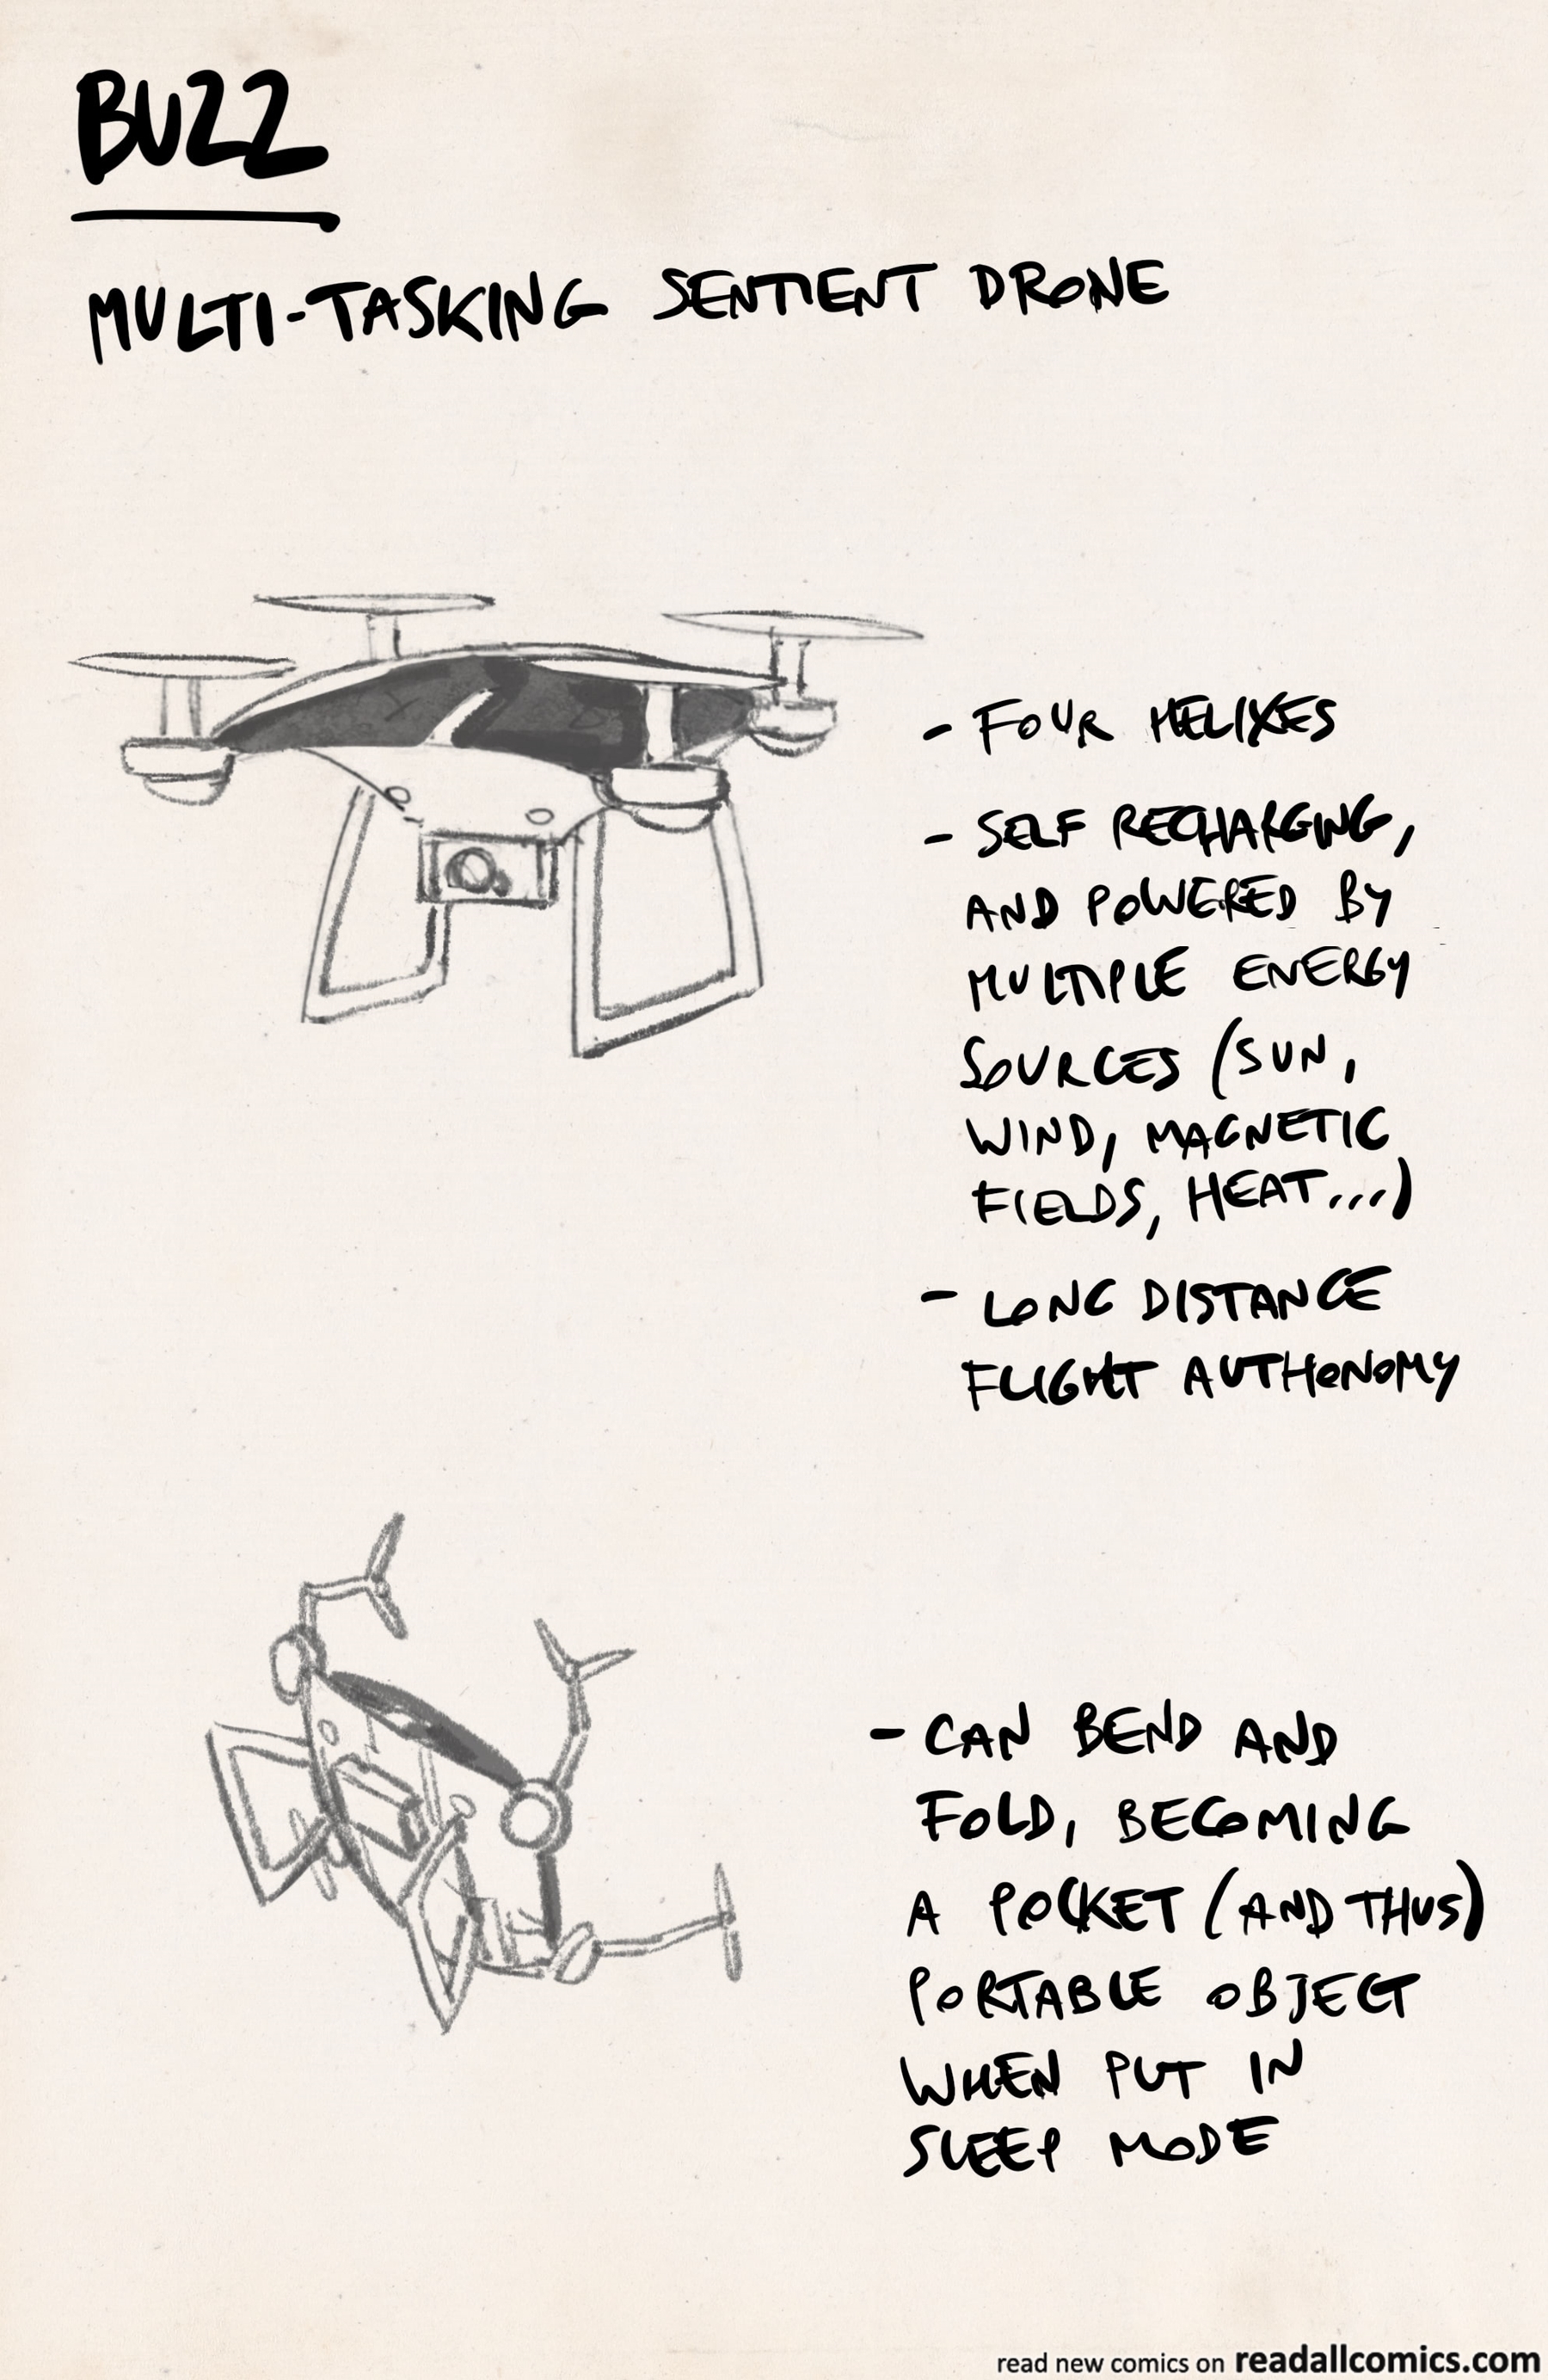 BUZZ
MULTI-TASKING SENTIENT DRONE
- FOUR HELIXES
- SELF RECHARGING,
AND POWERED BY
MULTIPLE ENERGY
SOURCES (SUN,
WIND, MAGNETIC
FIELDS, HEAT...)
- LONG DISTANCE
FLIGHT AUTHONOMY
- CAN BEND AND
FOLD, BECOMING
A POCKET (AND THUS)
PORTABLE OBJECT
WHEN PUT IN
SLEEP MODE
read new comics on readallcomics.com